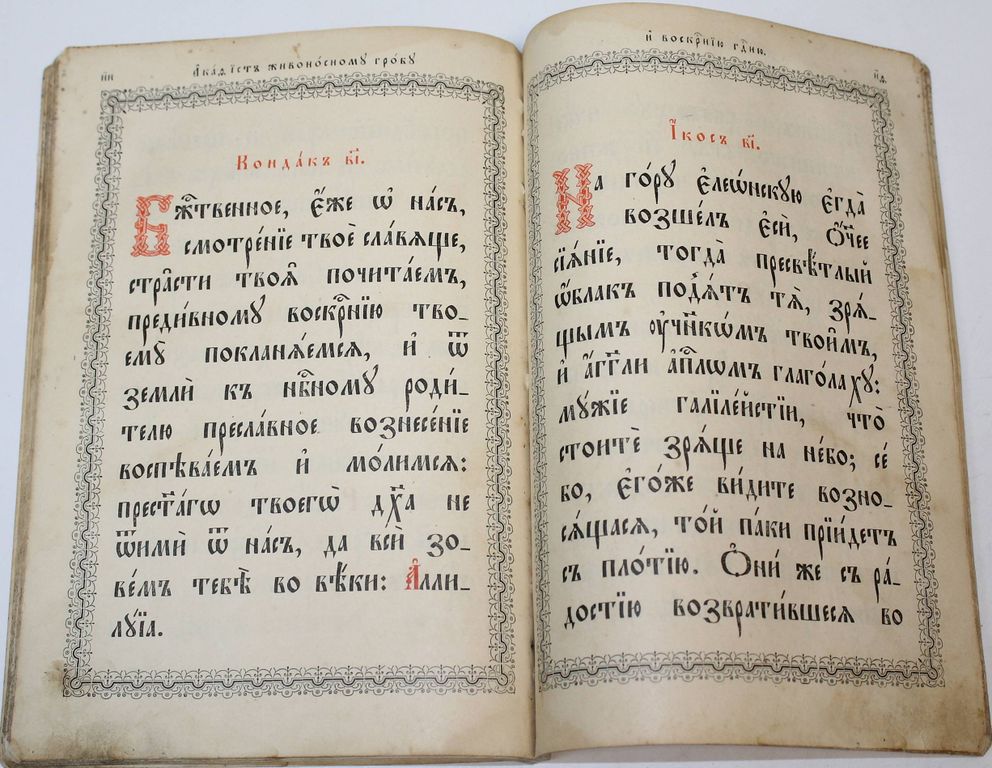 н҃и
А҆ка́ѳїстъ живоно́сному гро́бу
Конда́къ в҃і.
Бж҃е́ственное, є҆́же ѡ҆ на́съ,
смотре́нїе твоѐ сла́вѧще,
стра̑сти твоѧ̑ почита́емъ,
преди́вному воскр҃нїю тво-
ему̀ покланѧ́емсѧ, и҆ ѿ
землѝ къ нб҃ному роди́-
телю пресла́вное вознесе́нїе
воспѣва́емъ и҆ мо́лимсѧ:
прест҃а́гѡ твоегѡ̀ дх҃а не
ѿимѝ ѿ на́съ, да всѝ зо-
ве́мъ тебѣ̀ во вѣ́ки: А҆ллн-
лꙋ́їа.
и҆ воскр҃нїю гд҃ню.
н҃ѳ
І҆́косъ в҃і.
На го́рꙋ є҆леѡ́нскꙋю є҆гда̀
возше́лъ є҆сѝ, ѻ҆́ч҃ее
сїѧ́нїе, тогда̀ пресвѣ́тлый
ѡ҆́блакъ под̾ѧ́тъ тѧ̀, зрѧ́-
щымъ ᲂу҆чн҃кѡ́мъ твои̑мъ,
и҆ а҆́гг҃ли а҆п҃лѡмъ глаго́лахꙋ:
мꙋ́жїе галїле́йстїи, что̀
стоитѐ зрѧ́ще на не́бо; се́
бо, є҆го́же ви́дите возно-
сѧ́щасѧ, то́й па́ки прїи́детъ
съ пло́тїю. Ѻ҆ни́ же съ ра́-
достїю возврати́вшесѧ во